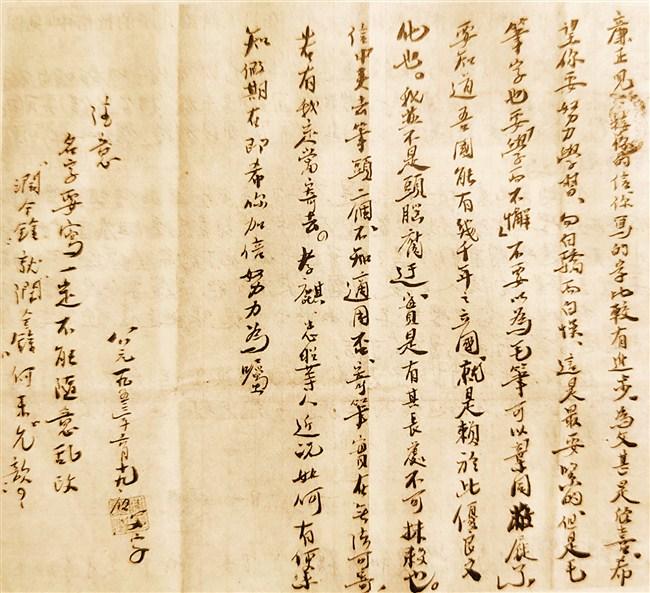 廉正見 你的信你寫的字比較有進步。為父甚是欣喜。希
望你要努力學習、勿付驕而自悞、這是最要緊的、但是毛
筆字也要「學而不懈」不要以為毛筆可以棄用 了」
要知道吾國能有幾千年之立國、就是賴於此優良文
化也。我並不是頭腦腐迂、實是有其長處不可抹殺也。
信中夾去筆頭二個、不知適用否、寄筆實在無法可寄、
若有我定當寄去。孝麒、忠 等人近況如何有便
知假期在即希你加倍努力為囑
公元一九五三年六月十九、 字
注意
名字要寫一定不能隨意乱改
"潤今鐘就潤今鐘"何